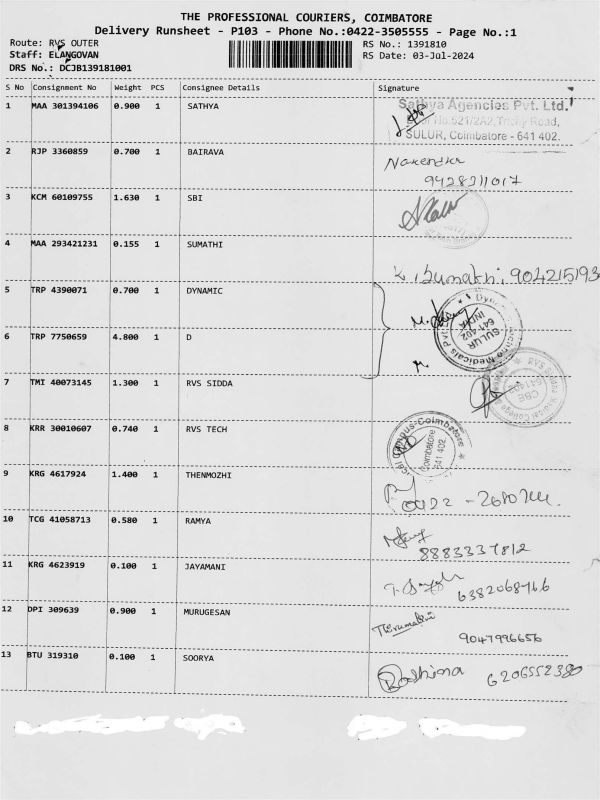 THE PROFESSIONAL COURIERS, COIMBATORE
Delivery Runsheet - P103 - Phone No.:0422-3505555 - Page No.:1
Route: RVS OUTER
Staff: ELANGOVAN
DRS No.: DCJB139181001
RS No.: 1391810
RS Date: 03-Jul-2024
S No Consignment No Weight PCS Consignee Details Signature
1 MAA 301394106 0.900 1 SATHYA
Sathya Agencies Pvt. Ltd.
Door No.521/2A2, Trichy Road,
SULUR, Coimbatore - 641 402.
2 RJP 3360859 0.700 1 BAIRAVA
Narendra
9428311017
3 KCM 60109755 1.630 1 SBI
4 MAA 293421231 0.155 1 SUMATHI
K. Sumathi. 904215193
5 TRP 4390071 0.700 1 DYNAMIC
SULUR
641 402
INDIA
6 TRP 7750659 4.800 1 D
7 TMI 40073145 1.300 1 RVS SIDDA
RVS Sidda
CBE
641402
8 KRR 30010607 0.740 1 RVS TECH
Campus-Coimbatore
Coimbatore
641 402.
9 KRG 4617924 1.400 1 THENMOZHI
10 TCG 41058713 0.580 1 RAMYA
8883337812
11 KRG 4623919 0.100 1 JAYAMANI
6382068466
12 DPI 309639 0.900 1 MURUGESAN
Thirumathi
9047996656
13 BTU 319310 0.100 1 SOORYA
Roshina 6206552380